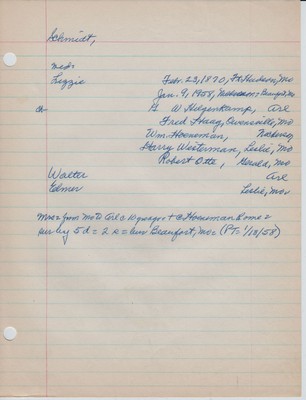 Schmidt,
Mrs
Lizzie Feb. 23, 1870, Ft Hudson, Mo
Jan. 9, 1958, Beaufort, Mo
ch G W Hilgenkamp, Arl
Fred Haag, Owensville, Mo
Wm. Hoeneman,
Harry Westerman, Leslie, Mo
Robert Otte, Gerald, Mo
Walter Arl
Elmer Leslie, Mo
Mrs = from Mo + C Hoeneman
sur by 5 d = 2 s = bur Beaufort, Mo = (PT: 1/13/58)